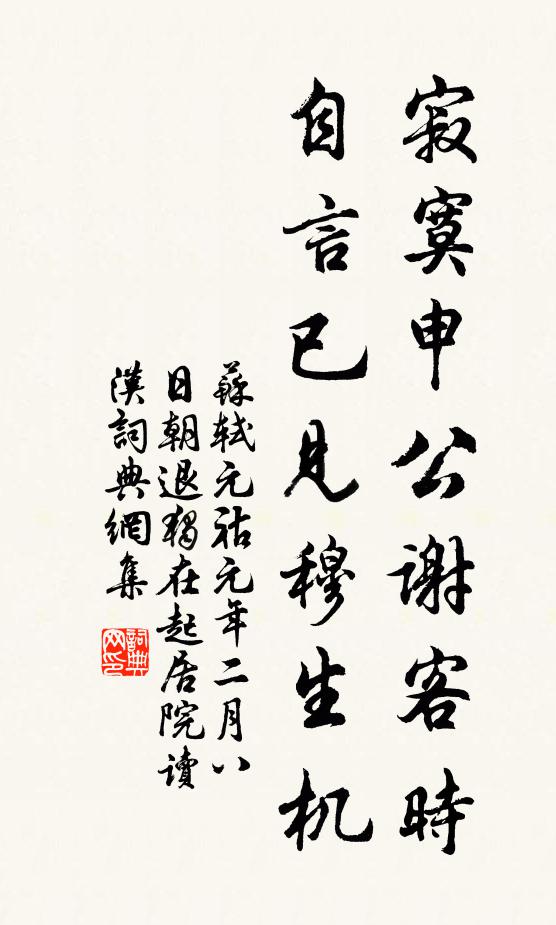 寂寞申公謝客時
自言已見穆生机
蘇軾元祐元年二月八
日朝退獨在起居院讀
漢詞典網集
詞典网印